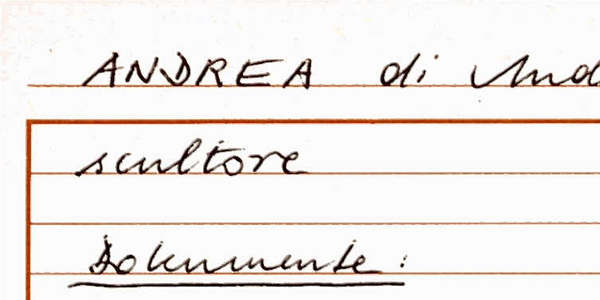 ANDREA di And
scultore
Dokumente: